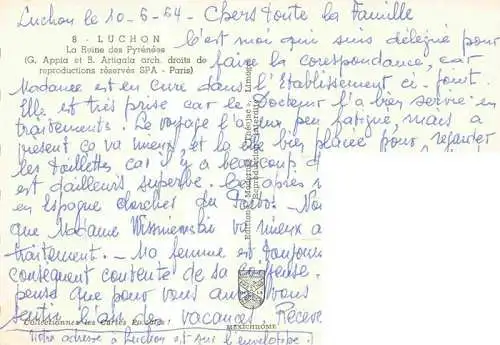 Luchon le 10-6-64 - Chers toute la Famille
8 - LUCHON
La Reine des Pyrénées
(G. Appia et B. Artigala arch. droits de
reproductions réservés SPA - Paris)
C'est moi qui suis délégué pour
faire la correspondance, car
Madame est en cure dans l'Etablissement ci-joint.
Elle est très prise car le Docteur l'a bien servie en
traitements. Le voyage l'a un peu fatigué, mais a
présent ça va mieux, et la vue bien placée pour regarder
les toilettes car il y a beaucoup d
est d'ailleurs superbe. Ces après
en Espagne chercher du
que Madame va mieux a
traitement. - Ma femme est toujours
conséquent contente de sa
pense que pour vous aussi vous
sentir l'air des vacances Recevez
Collectionnez les Cartes En
MEXICHROME
Notre adresse à Luchon est sur l'enveloppe.